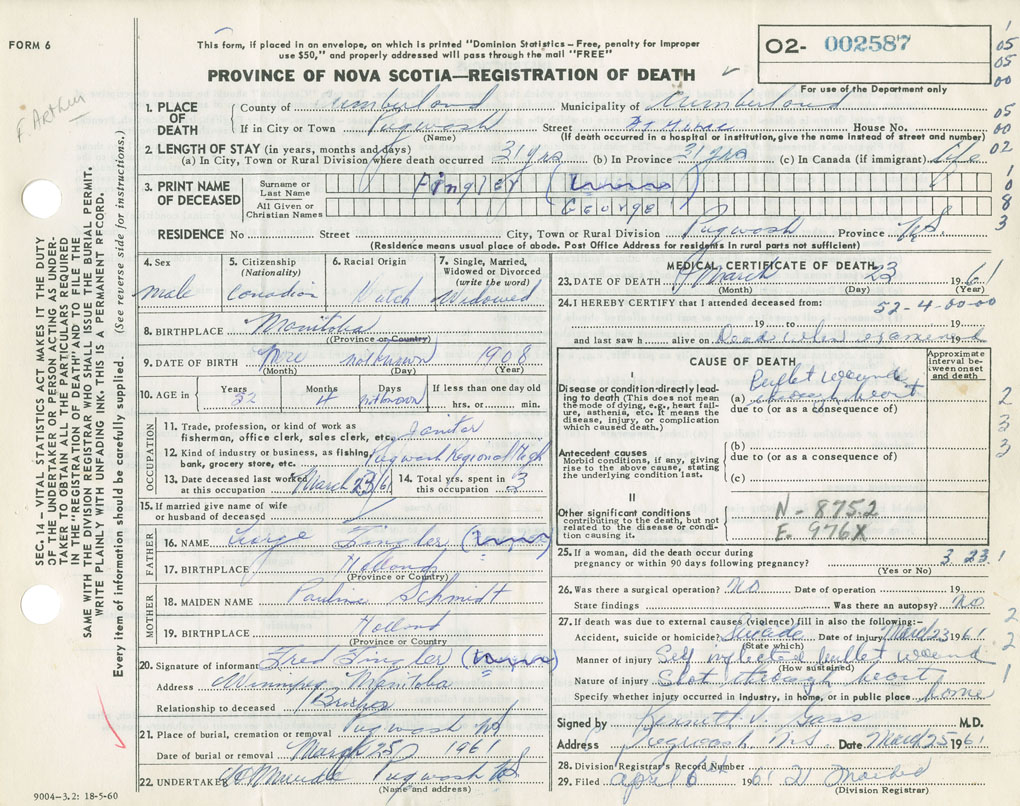 FORM 6
This form, if placed in an envelope, on which is printed "Dominion Statistics – Free, penalty for improper
use $50," and properly addressed will pass through the mail "FREE"
PROVINCE OF NOVA SCOTIA—REGISTRATION OF DEATH
O2- 002587
For use of the Department only
F. Arthur
1. PLACE OF DEATH
County of Cumberland Municipality of Cumberland
If in City or Town Pugwash Street House No.
(Name) (If death occurred in a hospital or institution, give the name instead of street and number)
2. LENGTH OF STAY (in years, months and days)
(a) In City, Town or Rural Division where death occurred 31 yrs (b) In Province 31 yrs (c) In Canada (if immigrant) life
3. PRINT NAME OF DECEASED
Surname or Last Name Fingler
All Given or Christian Names George
RESIDENCE No Street City, Town or Rural Division Pugwash Province N.S
(Residence means usual place of abode. Post Office Address for residents in rural parts not sufficient)
4. Sex male
5. Citizenship (Nationality) Canadian
6. Racial Origin Dutch
7. Single, Married, Widowed or Divorced (write the word) Widowed
8. BIRTHPLACE Manitoba
(Province or Country)
9. DATE OF BIRTH Nov not known 1908
(Month) (Day) (Year)
10. AGE in Years 52 Months 4 Days not known If less than one day old hrs. or min.
OCCUPATION
11. Trade, profession, or kind of work as
fisherman, office clerk, sales clerk, etc. Janitor
12. Kind of industry or business, as fishing,
bank, grocery store, etc. Pugwash Regional High
13. Date deceased last worked at this occupation March 23/61
14. Total yrs. spent in this occupation 3
15. If married give name of wife
or husband of deceased
FATHER
16. NAME George Fingler
17. BIRTHPLACE Holland
(Province or Country)
MOTHER
18. MAIDEN NAME Pauline Schmidt
19. BIRTHPLACE Holland
(Province or Country)
20. Signature of informant Fred Fingler
Address Winnipeg Manitoba
Relationship to deceased Brother
21. Place of burial, cremation or removal Pugwash NS
Date of burial or removal March 25 1961
22. UNDERTAKER Pugwash NS
(Name and address)
9004-3.2: 18-5-60
SEC. 14 – VITAL STATISTICS ACT MAKES IT THE DUTY
OF THE UNDERTAKER OR PERSON ACTING AS UNDER-
TAKER TO OBTAIN ALL THE PARTICULARS REQUIRED
IN THE "REGISTRATION OF DEATH" AND TO FILE THE
SAME WITH THE DIVISION REGISTRAR WHO SHALL ISSUE THE BURIAL PERMIT.
WRITE PLAINLY WITH UNFADING INK. THIS IS A PERMANENT RECORD.
Every item of information should be carefully supplied. (See reverse side for instructions.)
MEDICAL CERTIFICATE OF DEATH
23. DATE OF DEATH March 23 1961
(Month) (Day) (Year)
24. I HEREBY CERTIFY that I attended deceased from:
52-4-00-00
19 to 19
and last saw h alive on Dead when examined 19
CAUSE OF DEATH
Approximate interval between onset and death
I
Disease or condition directly leading to death (This does not mean the mode of dying, e.g., heart failure, asthenia, etc. It means the disease, injury, or complication which caused death.)
(a) bullet wound through heart
due to (or as a consequence of)
Antecedent causes
Morbid conditions, if any, giving rise to the above cause, stating the underlying condition last.
(b)
due to (or as a consequence of)
(c)
II
Other significant conditions
contributing to the death, but not related to the disease or condition causing it.
N-875.2
E-976X
25. If a woman, did the death occur during
pregnancy or within 90 days following pregnancy? 3 23.1
(Yes or No)
26. Was there a surgical operation? No Date of operation 19
State findings Was there an autopsy? No
27. If death was due to external causes (violence) fill in also the following:-
Accident, suicide or homicide? Suicide Date of injury March 23 1961
(State which)
Manner of injury Self inflicted bullet wound
(How sustained)
Nature of injury Shot through heart
Specify whether injury occurred in industry, in home, or in public place home
Signed by Kennett V. Gass M.D.
Address Pugwash NS Date March 25 1961
28. Division Registrar's Record Number
29. Filed April 6th 1961
(Division Registrar)
1
05
05
00
05
00
02
1
0
8
3
2
3
3
2
2
1